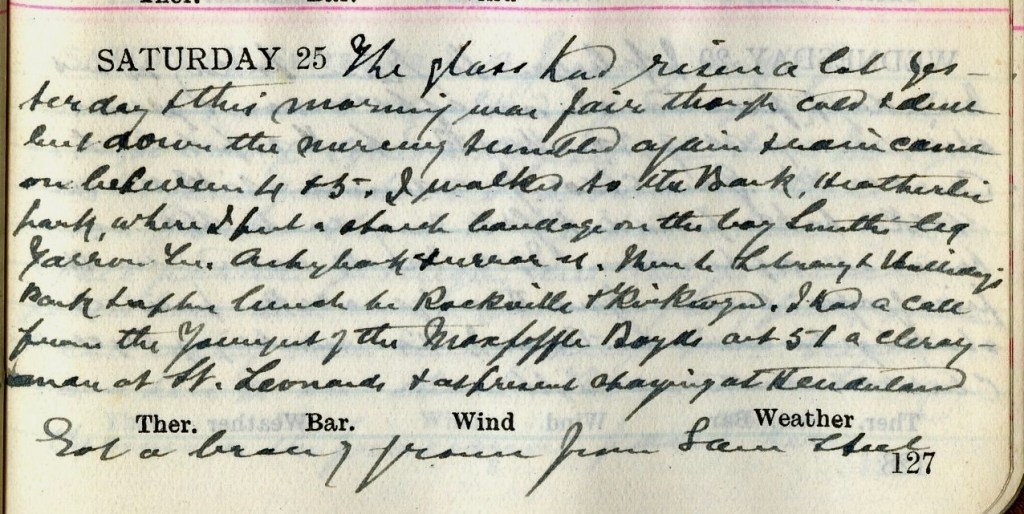 Ther. Bar. Wind
SATURDAY 25 The glass had risen a lot yes-
terday & this morning was fair though cold &
but down the mercury tumbled again & rain came
on between 4 & 5. I walked to the Bank,
park, where I put a starch bandage on the boy Smith's leg
Yarrow Ashybank & . Then to Library &
Bank & after lunch to Rockville & Kirkwynd. I had a call
from the Youngest of the Maxpoffle Boyds act 51 a clergy-
man at St. Leonards & at present staying at Hendersland
Ther. Bar. Wind Weather
Got a brace of grouse from Sam
127